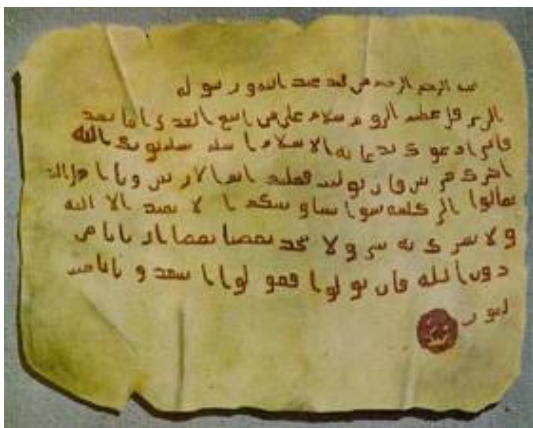 الرحمن الرحيم من محمد عبد الله ورسوله
الى هرقل عظيم الروم سلام على من اتبع الهدى اما بعد
فانى ادعوك بدعاية الاسلام اسلم تسلم يوتك الله
اجرك مرتين فان توليت فعليك اثم الاريسين ويا اهل
تعالوا الى كلمة سوا بيننا وبينكم الا نعبد الا الله
ولا نشرك به شيا ولا يتخذ بعضنا بعضا اربابا من
دون الله فان تولوا فقولوا اشهدوا بانا مسـ
لمون